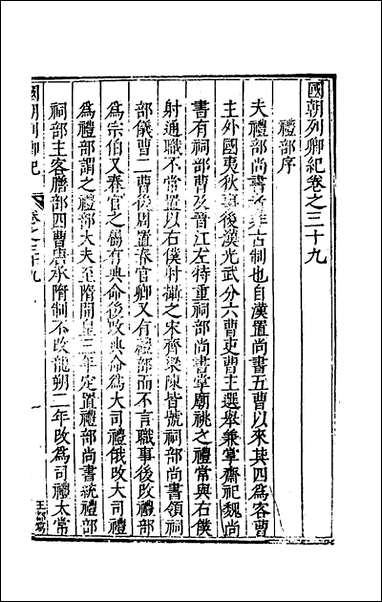 國朝列卿紀卷之三十九
禮部序
夫禮部尚書古制也自漢置尚書五曹以來其四為客曹
主外國夷狄事後漢光武分六曹吏曹主選舉兼掌齋祀魏尚
書有祠部曹及晉江左特重祠部尚書掌廟祧之禮常與右僕
射通職不常置以右僕射攝之宋齊梁陳皆號祠部尚書領祠
部儀曹二曹後周置春官卿又有禮部而不言職事後改禮部
為宗伯又春官之屬有典命後改典命為大司禮俄改大司禮
為禮部謂之禮部大夫至隋開皇三年定置禮部尚書統禮部
祠部主客膳部四曹唐承隋制不改龍朔二年改為司禮太常
國朝列卿紀
卷之三十九
一